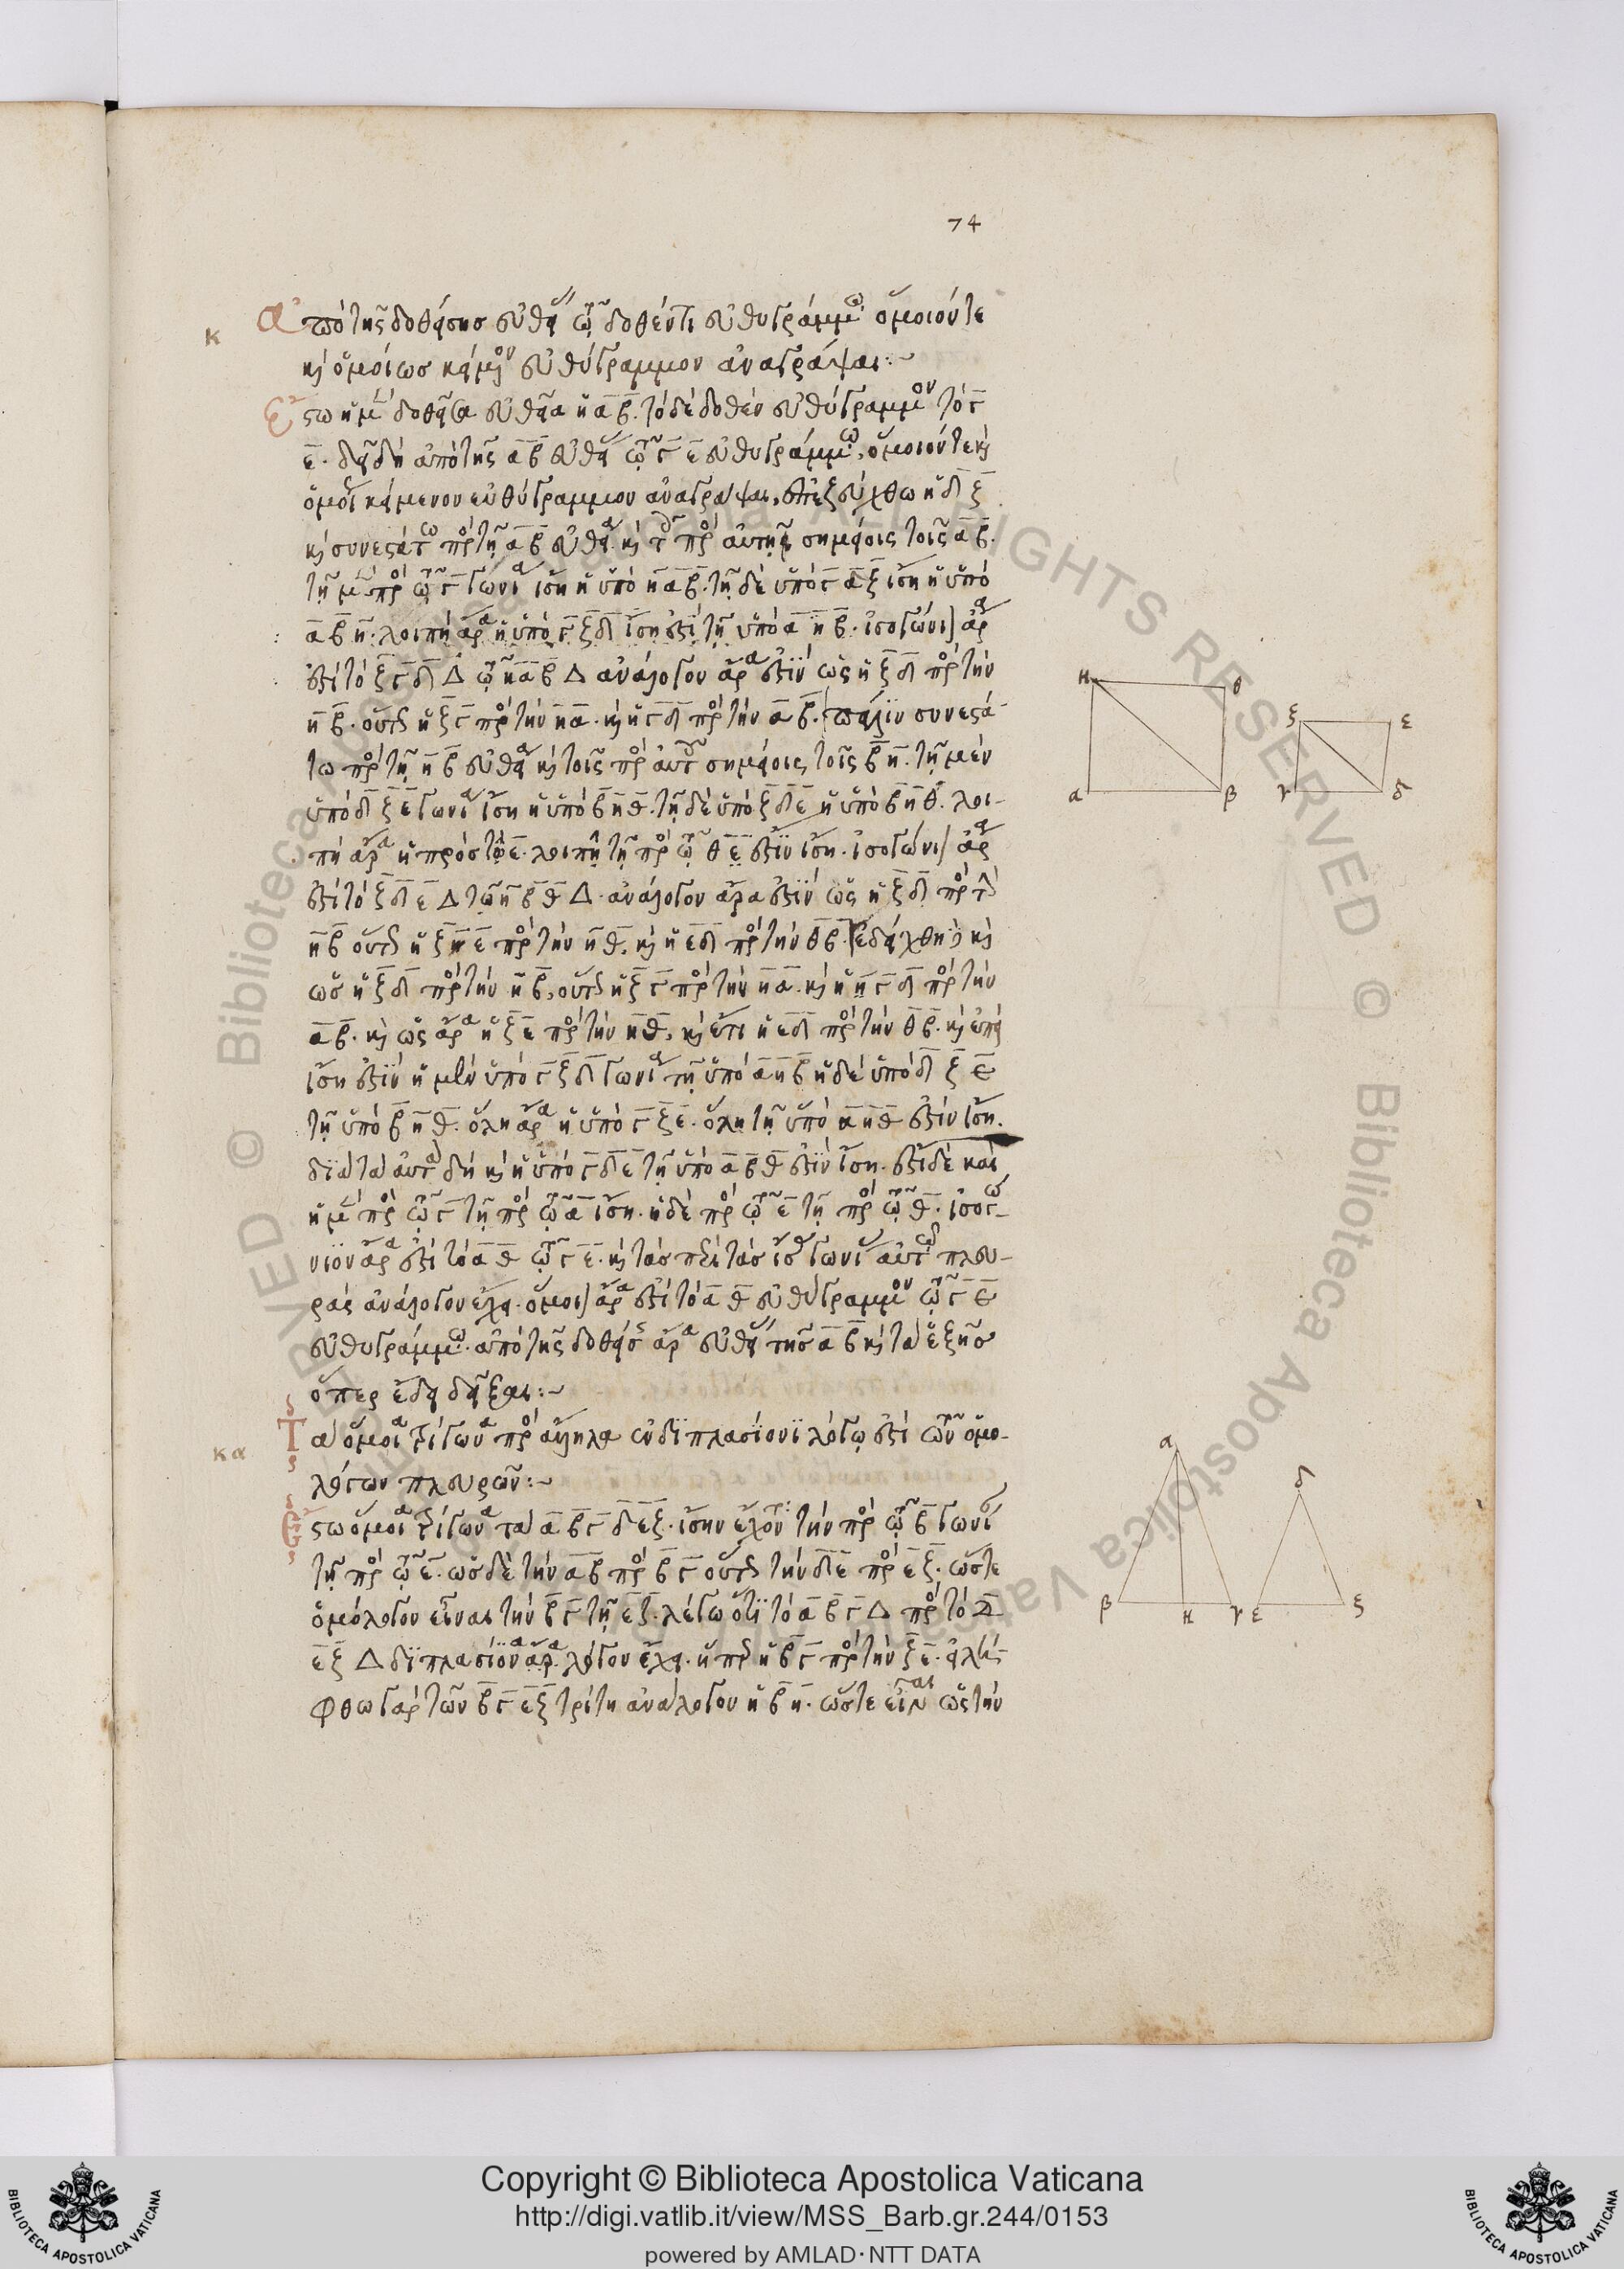 74
κ
Ἀπὸ τῆς δοθείσης εὐθείας τῷ δοθέντι εὐθυγράμμῳ ὅμοιόν τε
καὶ ὁμοίως κείμενον εὐθύγραμμον ἀναγράψαι:~
Ἔστω ἡ μὲν δοθεῖσα εὐθεῖα ἡ α β. τὸ δὲ δοθὲν εὐθύγραμμον τὸ γ
ε. δεῖ δὴ ἀπὸ τῆς α β εὐθείας τῷ γ ε εὐθυγράμμῳ, ὅμοιόν τε καὶ
ὁμοίως κείμενον εὐθύγραμμον ἀναγράψαι, ἐπεζεύχθω ἡ δ ζ
καὶ συνεστάτω πρὸς τῇ α β εὐθείᾳ καὶ τοῖς πρὸς αὐτῇ σημείοις τοῖς α β.
τῇ μὲν πρὸς τῷ γ γωνίᾳ ἴση ἡ ὑπὸ η α β. τῇ δὲ ὑπὸ γ δ ζ ἴση ἡ ὑπὸ
α β η. λοιπὴ ἄρα ἡ ὑπὸ γ ζ δ ἴση ἐστὶ τῇ ὑπὸ α η β. ἰσογώνιον ἄρα
ἐστὶ τὸ ζ γ δ Δ τῷ η α β Δ ἀνάλογον ἄρα ἐστὶν ὡς ἡ ζ δ πρὸς τὴν
η β. οὕτως ἡ ζ γ πρὸς τὴν η α. καὶ ἡ γ δ πρὸς τὴν α β. πάλιν συνεστά-
τω πρὸς τῇ η β εὐθείᾳ καὶ τοῖς πρὸς αὐτῇ σημείοις τοῖς β η. τῇ μὲν
ὑπὸ δ ζ ε γωνίᾳ ἴση ἡ ὑπὸ β η θ. τῇ δὲ ὑπὸ ζ δ ε ἡ ὑπὸ β η θ. λοι-
πὴ ἄρα ἡ πρὸς τῷ ε. λοιπῇ τῇ πρὸς τῷ θ ἐστὶν ἴση. ἰσογώνιον ἄρα
ἐστὶ τὸ ζ δ ε Δ τῷ η β θ Δ. ἀνάλογον ἄρα ἐστὶν ὡς ἡ ζ δ πρὸς τὴν
η β οὕτως ἡ ζ ε πρὸς τὴν η θ. καὶ ἡ ε δ πρὸς τὴν θ β. ἐδείχθη δὲ καὶ
ὡς ἡ ζ δ πρὸς τὴν η β, οὕτως ἡ ζ γ πρὸς τὴν η α. καὶ ἡ γ δ πρὸς τὴν
α β. καὶ ὡς ἄρα ἡ ζ ε πρὸς τὴν η θ, καὶ ἔτι ἡ ε δ πρὸς τὴν θ β. καὶ ἐπεὶ
ἴση ἐστὶν ἡ μὲν ὑπὸ γ ζ δ γωνία τῇ ὑπὸ α η β ἡ δὲ ὑπὸ δ ζ ε
τῇ ὑπὸ β η θ. ὅλη ἄρα ἡ ὑπὸ γ ζ ε. ὅλῃ τῇ ὑπὸ α η θ ἐστὶν ἴση.
διὰ τὰ αὐτὰ δὴ καὶ ἡ ὑπὸ γ δ ε τῇ ὑπὸ α β θ ἐστὶν ἴση. ἔστι δὲ καὶ
ἡ μὲν πρὸς τῷ γ τῇ πρὸς τῷ α ἴση. ἡ δὲ πρὸς τῷ ε τῇ πρὸς τῷ θ. ἰσογώ-
νιον ἄρα ἐστὶ τὸ α θ τῷ γ ε. καὶ τὰς περὶ τὰς ἴσας γωνίας αὐτῶν πλευ-
ρὰς ἀνάλογον ἔχει. ὅμοιον ἄρα ἐστὶ τὸ α θ εὐθύγραμμον τῷ γ ε
εὐθυγράμμῳ. ἀπὸ τῆς δοθείσης ἄρα εὐθείας τῆς α β καὶ τὰ ἑξῆς
ὅπερ ἔδει δεῖξαι:~
κα
Τὰ ὅμοια τρίγωνα πρὸς ἄλληλα ἐν διπλασίονι λόγῳ ἐστὶ τῶν ὁμο-
λόγων πλευρῶν:~
Ἔστω ὅμοια τρίγωνα τὰ α β γ δ ε ζ. ἴσην ἔχοντα τὴν πρὸς τῷ β γωνίαν
τῇ πρὸς τῷ ε. ὡς δὲ τὴν α β πρὸς β γ οὕτως τὴν δ ε πρὸς ε ζ. ὥστε
ὁμόλογον εἶναι τὴν β γ τῇ ε ζ. λέγω ὅτι τὸ α β γ Δ πρὸς τὸ δ
ε ζ Δ διπλασίονα ἄρα λόγον ἔχει. ἤπερ ἡ β γ πρὸς τὴν ζ ε. εἰλή-
φθω γὰρ τῶν β γ ε ζ τρίτη ἀνάλογον ἡ β η. ὥστε εἶναι ὡς τὴν
η θ
ξ ε
α β γ δ
α
δ
β η γ ε ζ
Copyright © Biblioteca Apostolica Vaticana
http://digi.vatlib.it/view/MSS_Barb.gr.244/0153
powered by AMLAD·NTT DATA
BIBLIOTECA APOSTOLICA VATICANA
BIBLIOTECA APOSTOLICA VATICANA